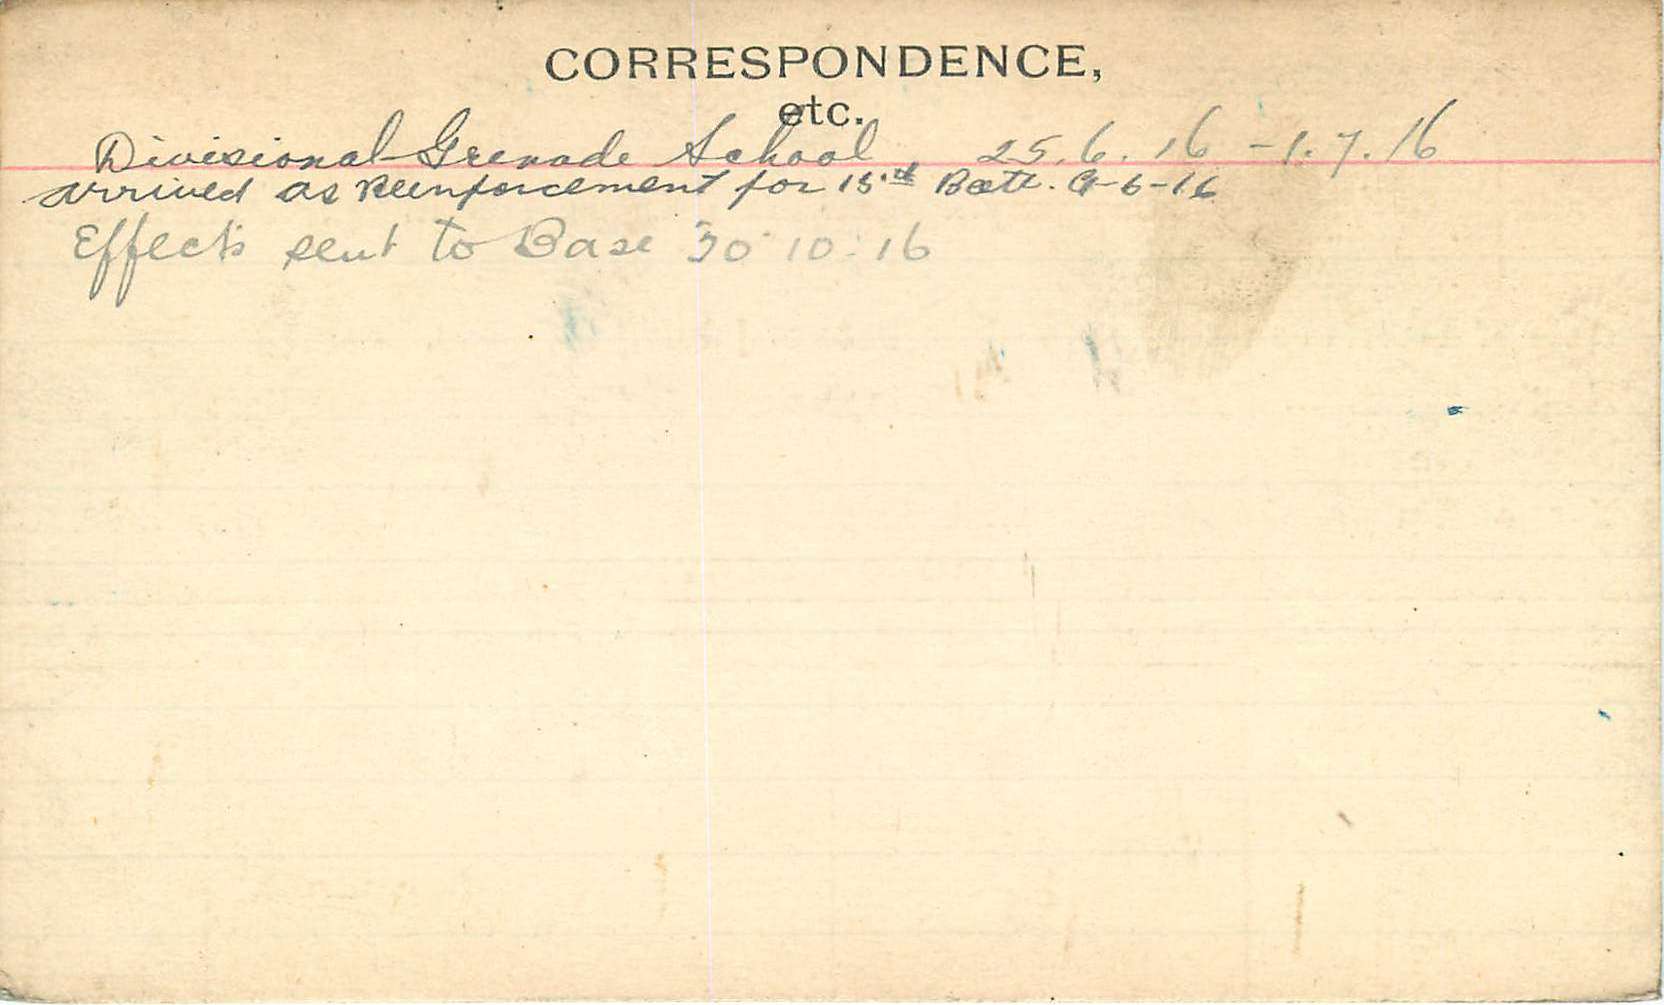 CORRESPONDENCE,
etc.
Divisional Grenade School, 25.6.16 - 1.7.16
arrived as Reinforcement for 15th Batt. 9-6-16
Effects sent to Base 30.10.16